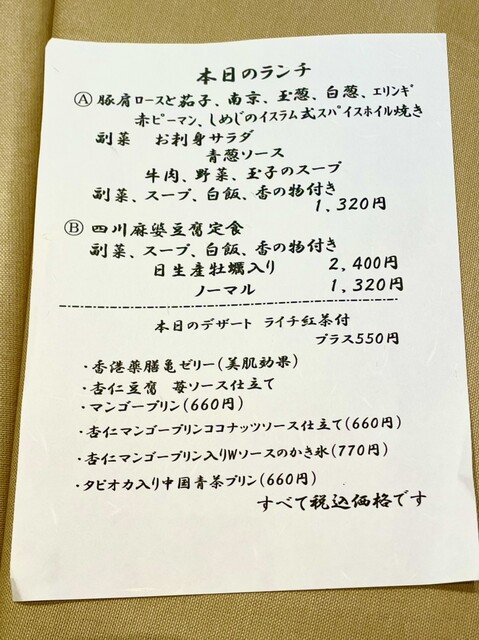 本日のランチ
Ⓐ 豚肩ロースと茄子、南京、玉葱、白葱、エリンギ
赤ピーマン、しめじのイスラム式スパイスホイル焼き
副菜 お刺身サラダ
青葱ソース
牛肉、野菜、玉子のスープ
副菜、スープ、白飯、香の物付き
1,320円
Ⓑ 四川麻婆豆腐定食
副菜、スープ、白飯、香の物付き
日生産牡蠣入り 2,400円
ノーマル 1,320円
本日のデザート ライチ紅茶付
プラス550円
・香港薬膳亀ゼリー(美肌効果)
・杏仁豆腐 苺ソース仕立て
・マンゴープリン(660円)
・杏仁マンゴープリンココナッツソース仕立て(660円)
・杏仁マンゴープリン入りWソースのかき氷(770円)
・タピオカ入り中国青茶プリン(660円)
すべて税込価格です